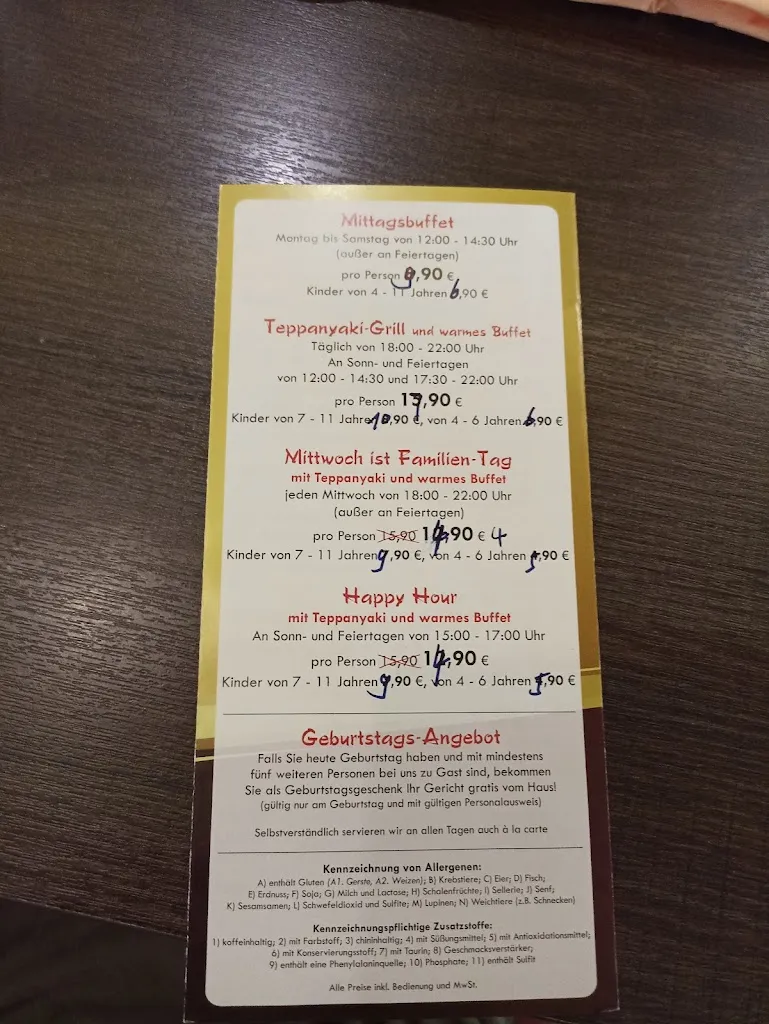 Mittagsbuffet
Montag bis Samstag von 12:00 - 14:30 Uhr
(außer an Feiertagen)
pro Person 9,90 €
Kinder von 4 - 11 Jahren 6,90 €
Teppanyaki-Grill und warmes Buffet
Täglich von 18:00 - 22:00 Uhr
An Sonn- und Feiertagen
von 12:00 - 14:30 und 17:30 - 22:00 Uhr
pro Person ,90 €
Kinder von 7 - 11 Jahre 10,90 €, von 4 - 6 Jahren 6,90 €
Mittwoch ist Familien-Tag
mit Teppanyaki und warmes Buffet
jeden Mittwoch von 18:00 - 22:00 Uhr
(außer an Feiertagen)
pro Person 15,90 14,90 € 4
Kinder von 7 - 11 Jahren 9,90 €, von 4 - 6 Jahren 5,90 €
Happy Hour
mit Teppanyaki und warmes Buffet
An Sonn- und Feiertagen von 15:00 - 17:00 Uhr
pro Person 15,90 14,90 €
Kinder von 7 - 11 Jahren 9,90 €, von 4 - 6 Jahren 5,90 €
Geburtstags-Angebot
Falls Sie heute Geburtstag haben und mit mindestens
fünf weiteren Personen bei uns zu Gast sind, bekommen
Sie als Geburtstagsgeschenk Ihr Gericht gratis vom Haus!
(gültig nur am Geburtstag und mit gültigen Personalausweis)
Selbstverständlich servieren wir an allen Tagen auch à la carte
Kennzeichnung von Allergenen:
A) enthält Gluten (A1. Gerste, A2. Weizen); B) Krebstiere; C) Eier; D) Fisch;
E) Erdnuss; F) Soja; G) Milch und Lactose; H) Schalenfrüchte; I) Sellerie; J) Senf;
K) Sesamsamen; L) Schwefeldioxid und Sulfite; M) Lupinen; N) Weichtiere (z.B. Schnecken)
Kennzeichnungspflichtige Zusatzstoffe:
1) koffeinhaltig; 2) mit Farbstoff; 3) chininhaltig; 4) mit Süßungsmittel; 5) mit Antioxidationsmittel;
6) mit Konservierungsstoff; 7) mit Taurin; 8) Geschmacksverstärker;
9) enthält eine Phenylalaninquelle; 10) Phosphate; 11) enthält Sulfit
Alle Preise inkl. Bedienung und MwSt.